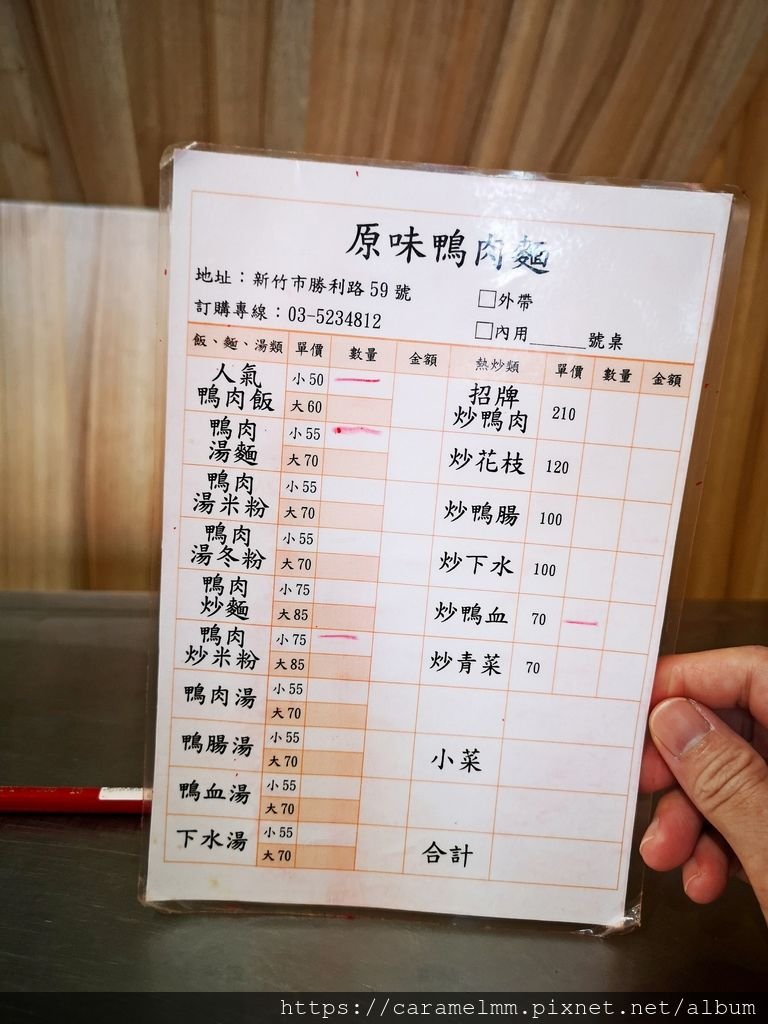 原味鴨肉麵
地址：新竹市勝利路59號
訂購專線：03-5234812
□外帶
□內用______號桌
飯、麵、湯類 單價 數量 金額 熱炒類 單價 數量 金額
人氣鴨肉飯 小50 大60
招牌炒鴨肉 210
鴨肉湯麵 小55 大70
炒花枝 120
鴨肉湯米粉 小55 大70
炒鴨腸 100
鴨肉湯冬粉 小55 大70
炒下水 100
鴨肉炒麵 小75 大85
炒鴨血 70
鴨肉炒米粉 小75 大85
炒青菜 70
鴨肉湯 小55 大70
鴨腸湯 小55 大70
小菜
鴨血湯 小55 大70
下水湯 小55 大70
合計
https://caramelmm.pixnet.net/album